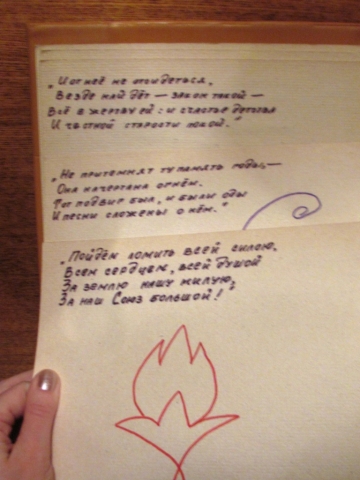 „И от неё не отсидеться,
Везде найдёт — закон такой —
Всё в жертву ей: и счастье детства
И честной старости покой."
„Не притемнят ту память годы,—
Она начертана огнём.
Тот подвиг был, и были оды
И песни сложены о нём."
„Пойдём ломить всей силою,
Всем сердцем, всей душой
За землю нашу милую,
За наш Союз большой!